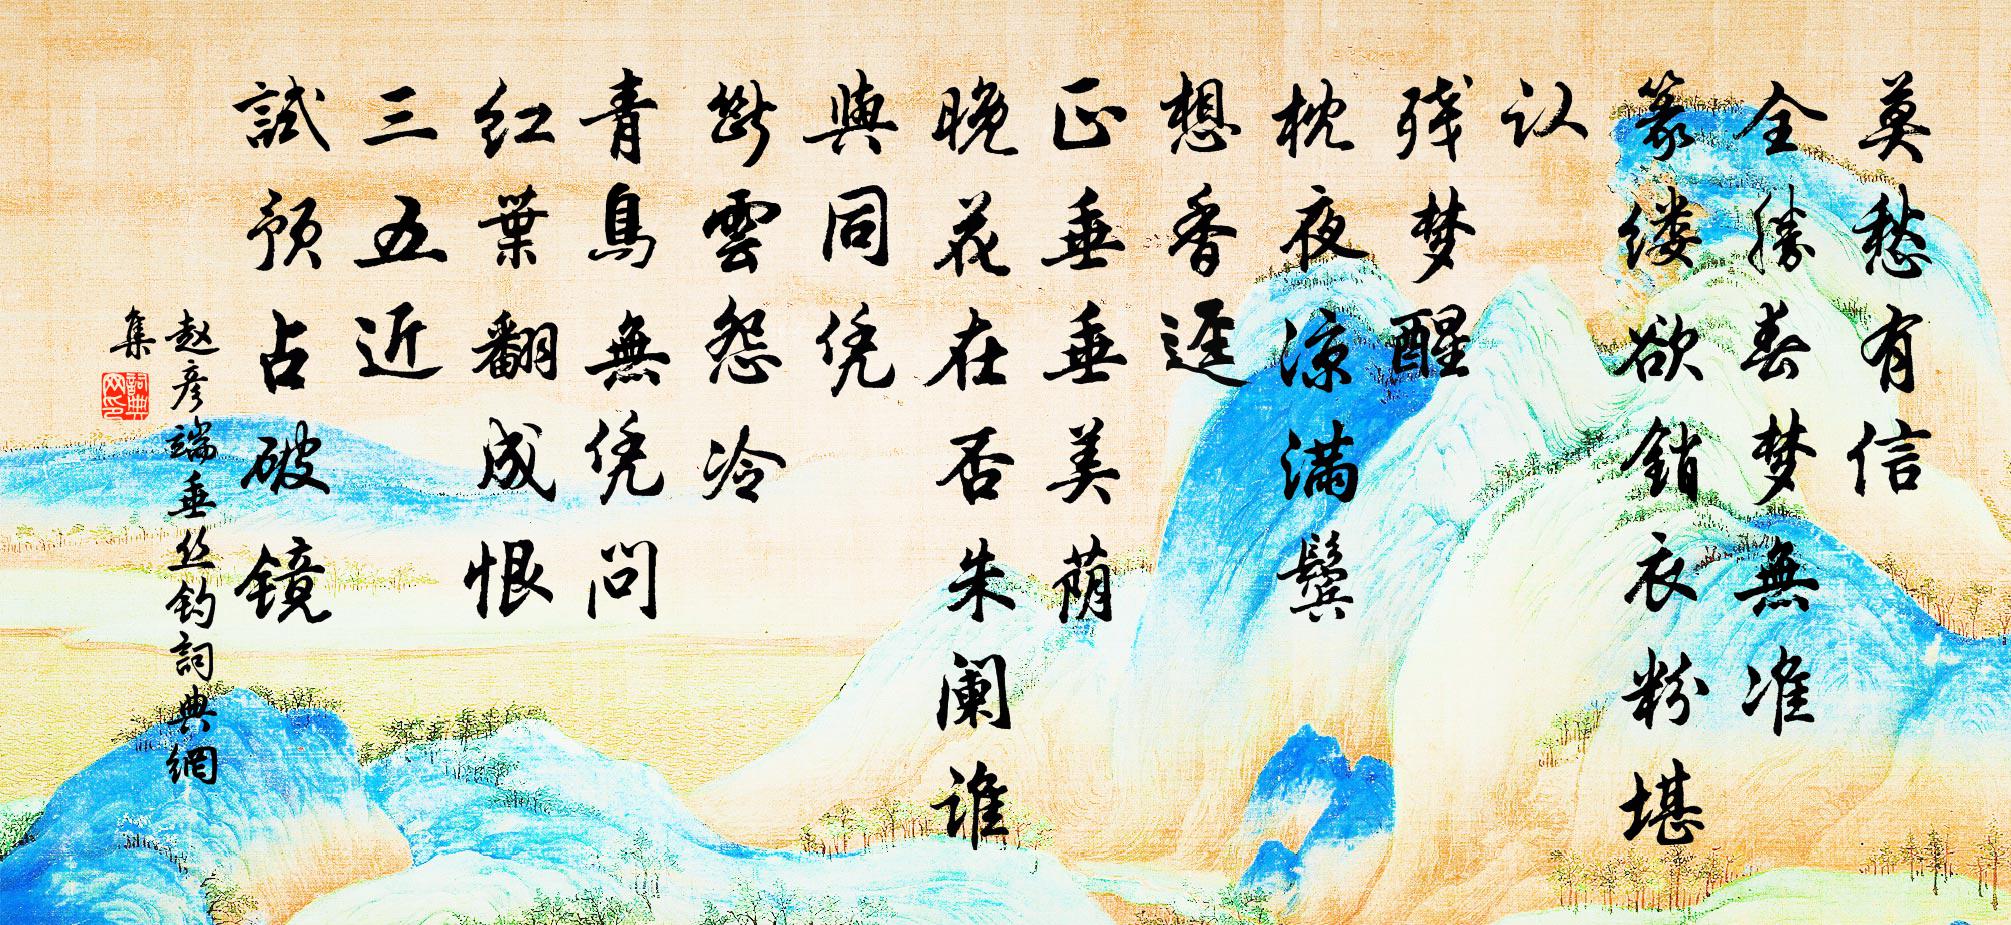 莫愁有信
全勝春梦無准
篆缕欲銷衣粉堪
认
残梦醒
枕夜涼满鬓
想香迳
正垂垂美荫
晚花在否朱阑谁
與同凭
斷雲怨冷
青鳥無凭問
红葉翻成恨
三五近
試预占破镜
赵彦端垂丝钓詞典網
集
詞典
网印